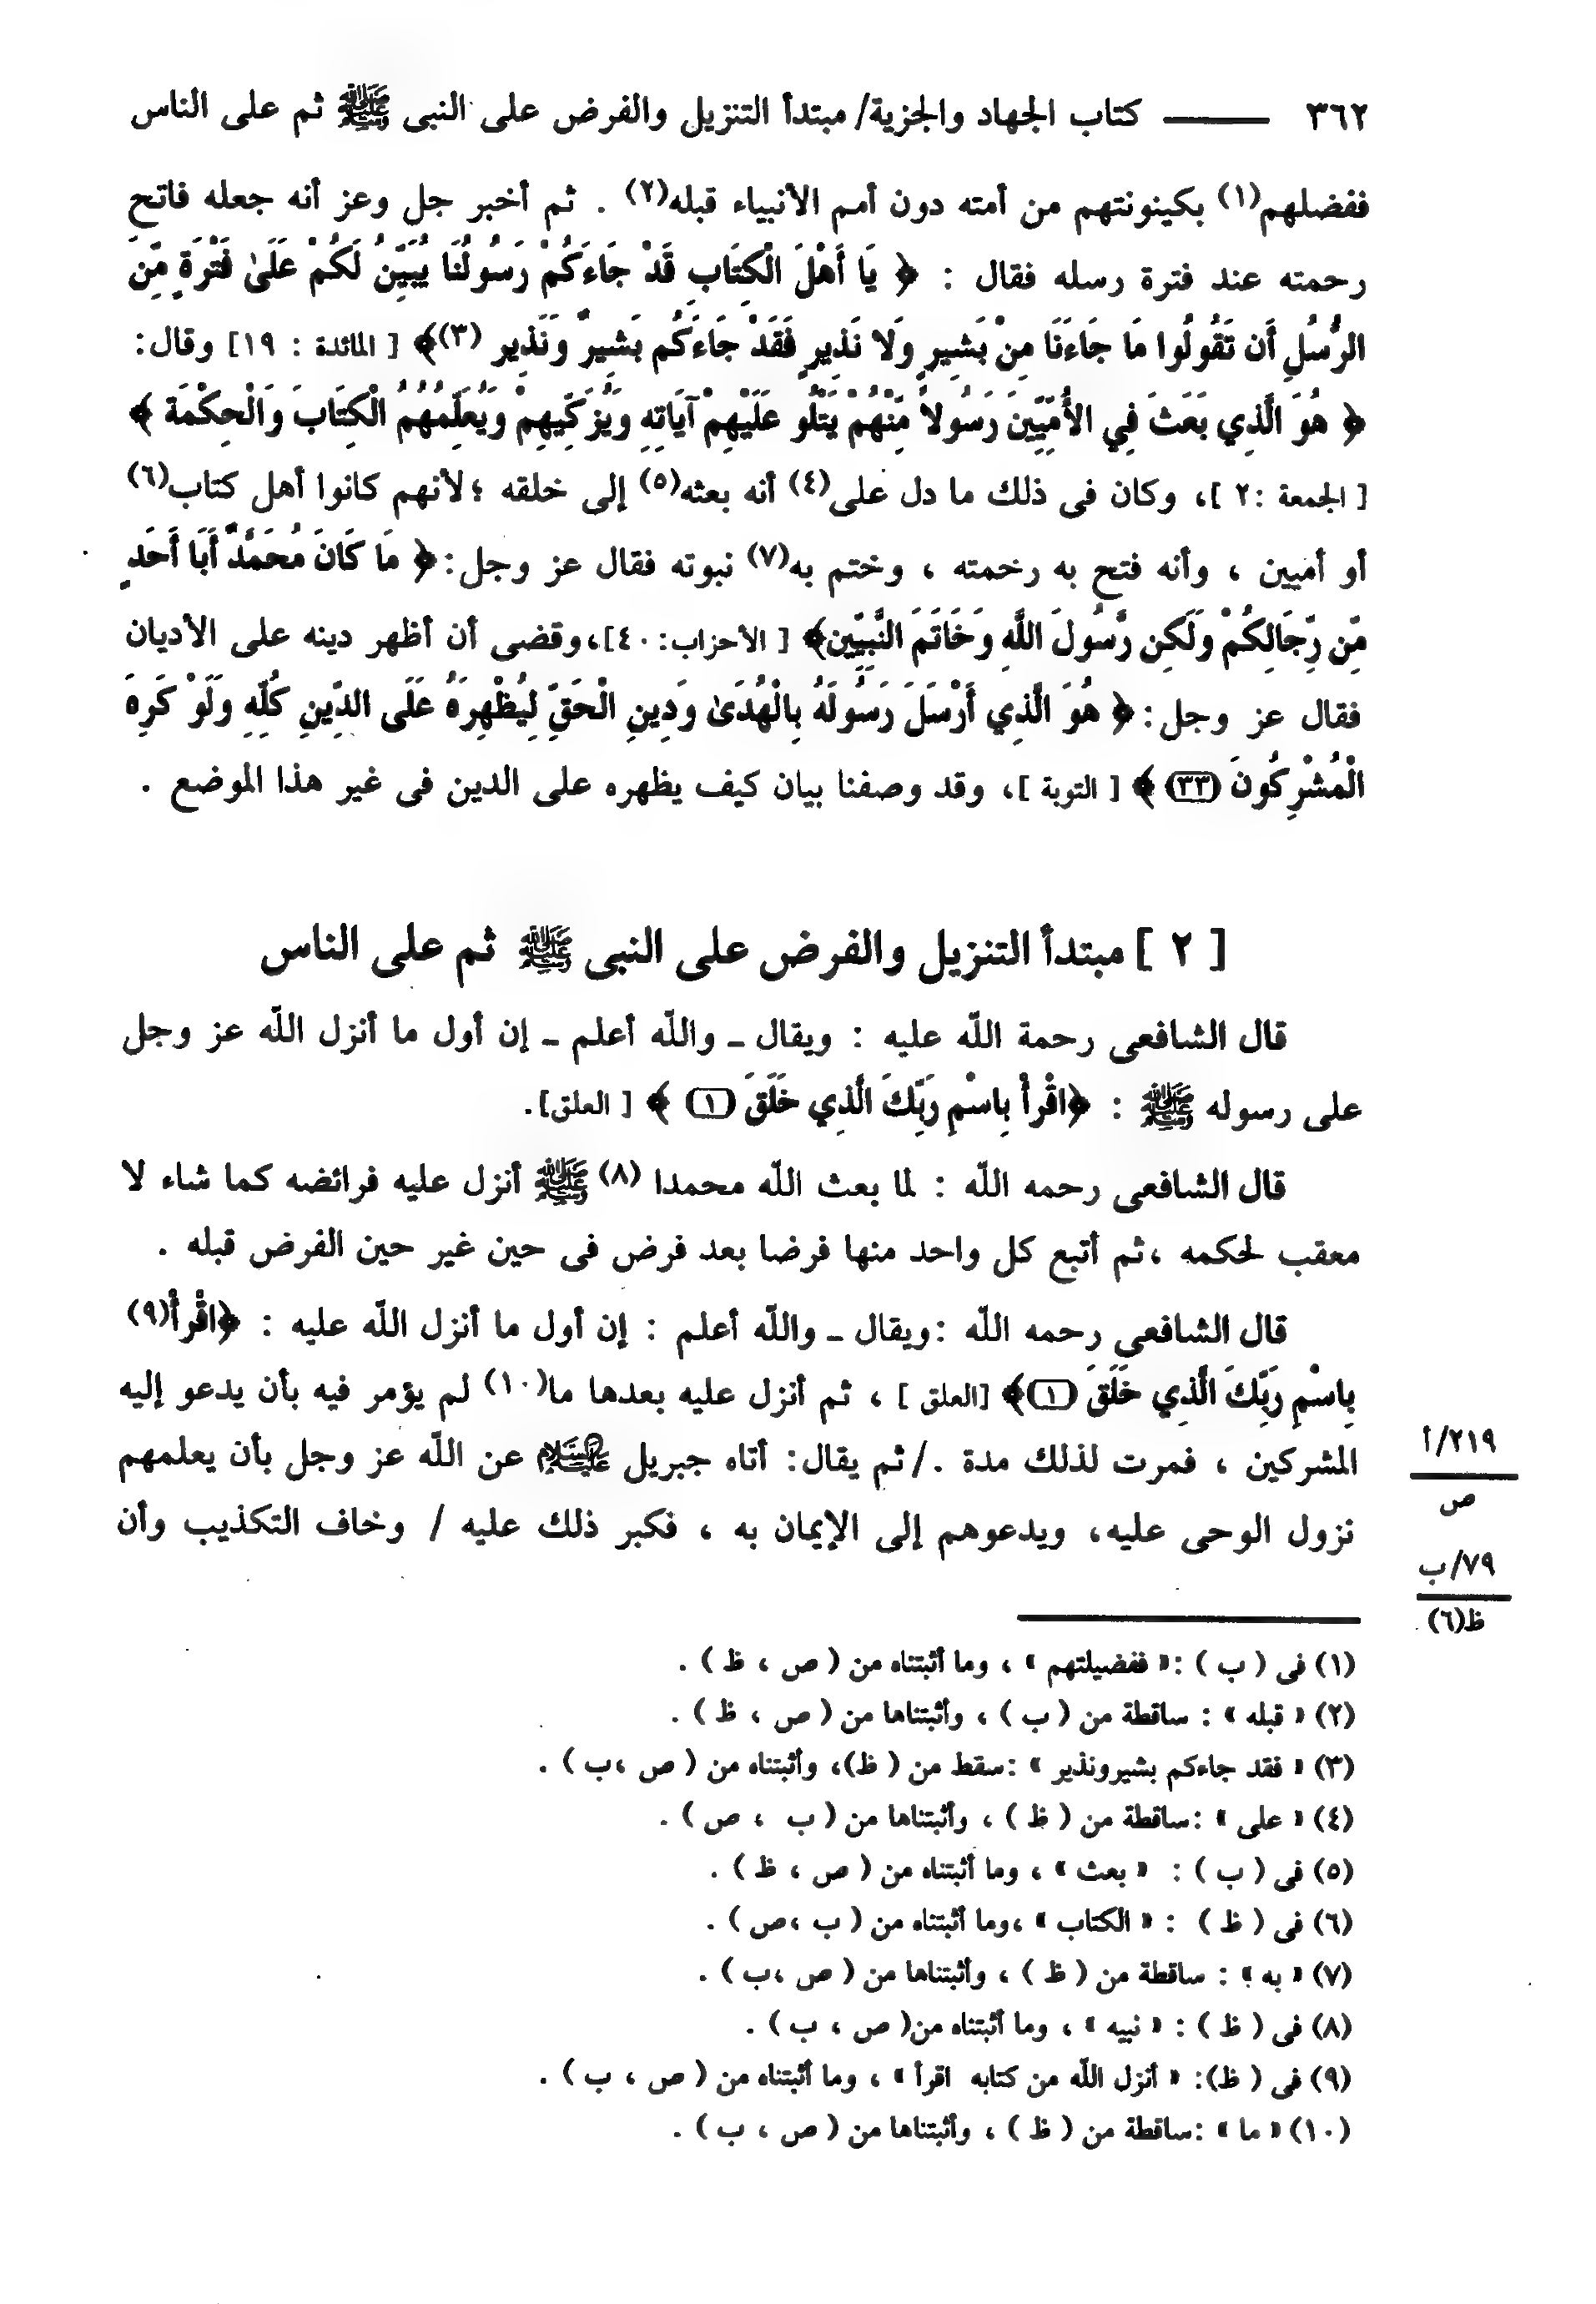 ٣٦٢ ـــــــ كتاب الجهاد والجزية/ مبتدأ التنزيل والفرض على النبى ﷺ ثم على الناس
ففضلهم(١) بكينونتهم من أمته دون أمم الأنبياء قبله(٢) . ثم أخبر جل وعز أنه جعله فاتح
رحمته عند فترة رسله فقال : ﴿ يَا أَهْلَ الْكِتَابِ قَدْ جَاءَكُمْ رَسُولُنَا يُبَيِّنُ لَكُمْ عَلَىٰ فَتْرَةٍ مِّنَ
الرُّسُلِ أَن تَقُولُوا مَا جَاءَنَا مِنْ بَشِيرٍ وَلا نَذِيرٍ فَقَدْ جَاءَكُم بَشِيرٌ وَنَذِير (٣)﴾ [ المائدة : ١٩] وقال:
﴿ هُوَ الَّذِي بَعَثَ فِي الأُمِّيِّينَ رَسُولاً مِّنْهُمْ يَتْلُو عَلَيْهِمْ آيَاتِهِ وَيُزَكِّيهِمْ وَيُعَلِّمُهُمُ الْكِتَابَ وَالْحِكْمَة ﴾
[ الجمعة :٢ ]، وكان فى ذلك ما دل على(٤) أنه بعثه(٥) إلى خلقه ؛لأنهم كانوا أهل كتاب(٦)
أو أميين ، وأنه فتح به رحمته ، وختم به(٧) نبوته فقال عز وجل:﴿ مَا كَانَ مُحَمَّدٌ أَبَا أَحَدٍ
مِّن رِّجَالِكُمْ وَلَكِن رَّسُولَ اللَّهِ وَخَاتَمَ النَّبِيِّين﴾ [ الأحزاب:٤٠]،وقضى أن أظهر دينه على الأديان
فقال عز وجل:﴿ هُوَ الَّذِي أَرْسَلَ رَسُولَهُ بِالْهُدَىٰ وَدِينِ الْحَقِّ لِيُظْهِرَهُ عَلَى الدِّينِ كُلِّهِ وَلَوْ كَرِهَ
الْمُشْرِكُونَ (٣٣) ﴾ [ التوبة ]، وقد وصفنا بيان كيف يظهره على الدين فى غير هذا الموضع .
[ ٢ ] مبتدأ التنزيل والفرض على النبى ﷺ ثم على الناس
قال الشافعى رحمة اللّه عليه : ويقال ـ واللّه أعلم ـ إن أول ما أنزل اللّه عز وجل
على رسوله ﷺ : ﴿اقْرأْ بِاسْمِ رَبِّكَ الَّذِي خَلَقَ (١) ﴾ [ العلق].
قال الشافعى رحمه اللّه : لما بعث اللّه محمدا (٨) ﷺ أنزل عليه فرائضه كما شاء لا
معقب لحكمه ،ثم أتبع كل واحد منها فرضا بعد فرض فى حين غير حين الفرض قبله .
قال الشافعى رحمه اللّه :ويقال ـ واللّه أعلم : إن أول ما أنزل اللّه عليه : ﴿اقْرأْ(٩)
بِاسْمِ رَبِّكَ الَّذِي خَلَقَ (١)﴾ [العلق ] ، ثم أنزل عليه بعدها ما(١٠) لم يؤمر فيه بأن يدعو إليه
المشركين ، فمرت لذلك مدة ./ ثم يقال: أتاه جبريل عليه السلام عن اللّه عز وجل بأن يعلمهم
نزول الوحى عليه، ويدعوهم إلى الإيمان به ، فكبر ذلك عليه / وخاف التكذيب وأن
٢١٩/أ
ص
٧٩/ب
ظ(٦)
(١) فى ( ب ) :« ففضيلتهم » ، وما أثبتناه من ( ص ، ظ ) .
(٢) « قبله » : ساقطة من ( ب ) ، وأثبتناها من ( ص ، ظ ) .
(٣) « فقد جاءكم بشيرونذير » :سقط من ( ظ)، وأثبتناه من ( ص ،ب ) .
(٤) « على » :ساقطة من ( ظ ) ، وأثبتناها من ( ب ، ص ) .
(٥) فى ( ب ) : « بعث » ، وما أثبتناه من ( ص ، ظ ) .
(٦) فى ( ظ ) : « الكتاب » ،وما أثبتناه من ( ب ،ص ) .
(٧) « به » : ساقطة من ( ظ ) ، وأثبتناها من ( ص ،ب ) .
(٨) فى ( ظ ) : « نبيه » ، وما أثبتناه من( ص ، ب ) .
(٩) فى ( ظ): « أنزل اللّه من كتابه اقرأ » ، وما أثبتناه من ( ص ، ب ) .
(١٠) « ما » :ساقطة من ( ظ ) ، وأثبتناها من ( ص ، ب ) .